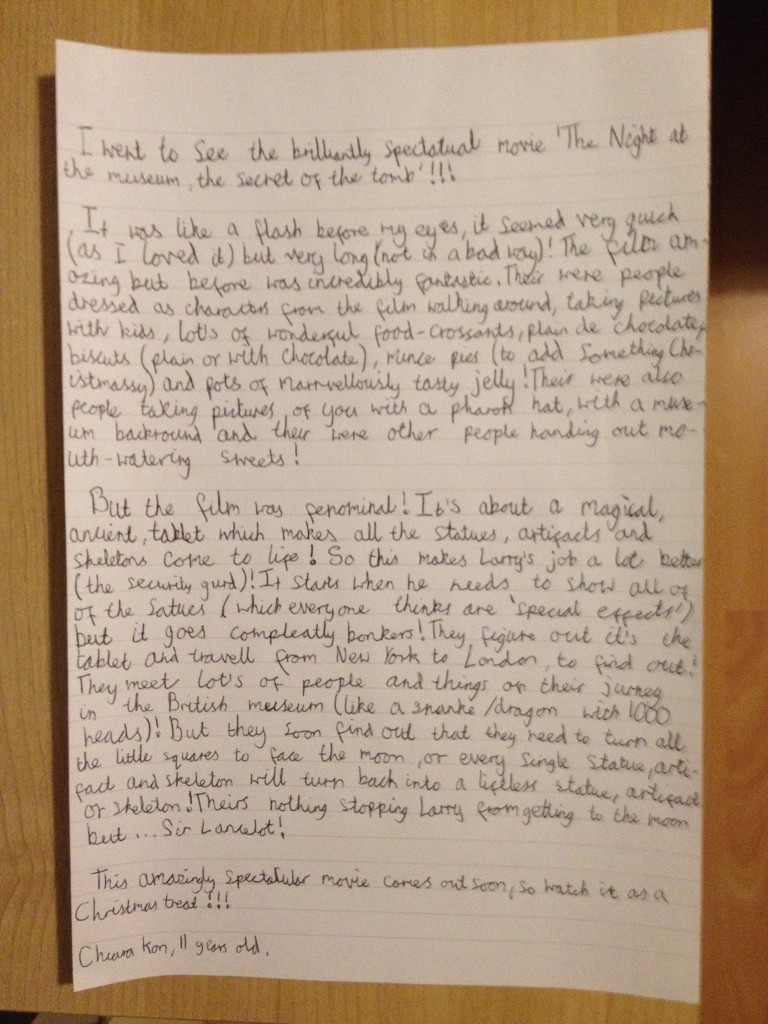 I went to see the brilliantly spectatual movie 'The Night at
the museum, the secret of the tomb'!!!
It was like a flash before my eyes, it seemed very quick
(as I loved it) but very long (not in a bad way)! The film am-
azing but before was incredibly fantastic. Their were people
dressed as characters from the film walking around, taking pictures
with kids, lot's of wonderful food-crossants, plain de chocolate,
biscuts (plain or with chocolate), mince pies (to add something Chr-
istmassy) and pots of marrvellously tasty jelly! Their were also
people taking pictures of you with a pharoh hat, with a muse-
um backround and their were other people handing out mo-
uth-watering sweets!
But the film was fenominal! It's about a magical,
ancient, tablet which makes all the statues, artifacts and
skeletons come to life! So this makes Larry's job a lot better
(the security gurd)! It starts when he needs to show all of
of the satues (which everyone thinks are 'special effects')
but it goes compleatly bonkers! They figure out it's the
tablet and travell from New York to London, to find out!
They meet lot's of people and things on their jurney
in the British museum (like a snanke/dragon with 1000
heads)! But they soon find out that they need to turn all
the little squares to face the moon, or every single statue, arti-
fact and skeleton will turn back into a lifless statue, artifact
or skeleton! Theirs nothing stopping Larry from getting to the moon
but... Sir Lancelot!
This amazingly spectatular movie comes out soon, so watch it as a
Christmas treat!!!
Chiara Kon, 11 years old.